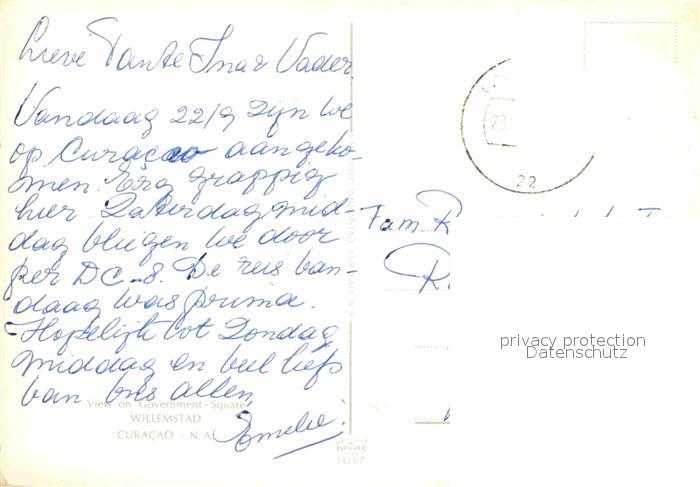 Lieve Tante Ina & Vader
Vandaag 22/9 zijn we
op Curaçao aangeko-
men. Erg grappig
hier. Zaterdag mid-
dag vliegen we door
per DC-8. De reis van-
daag was prima.
Hopelijk tot Zondag
middag en veel liefs
van ons allen,
View on Government-Square
WILLEMSTAD
CURAÇAO - N.A.
1423/7
22
Fam. R
privacy protection
Datenschutz